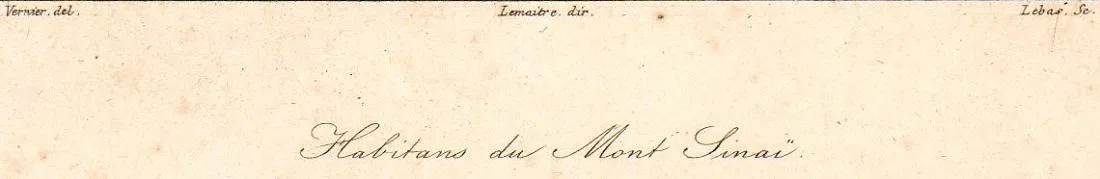 Vernier. del. Lemaitre. dir. Lebas. Sc.
Habitans du Mont Sinaï.